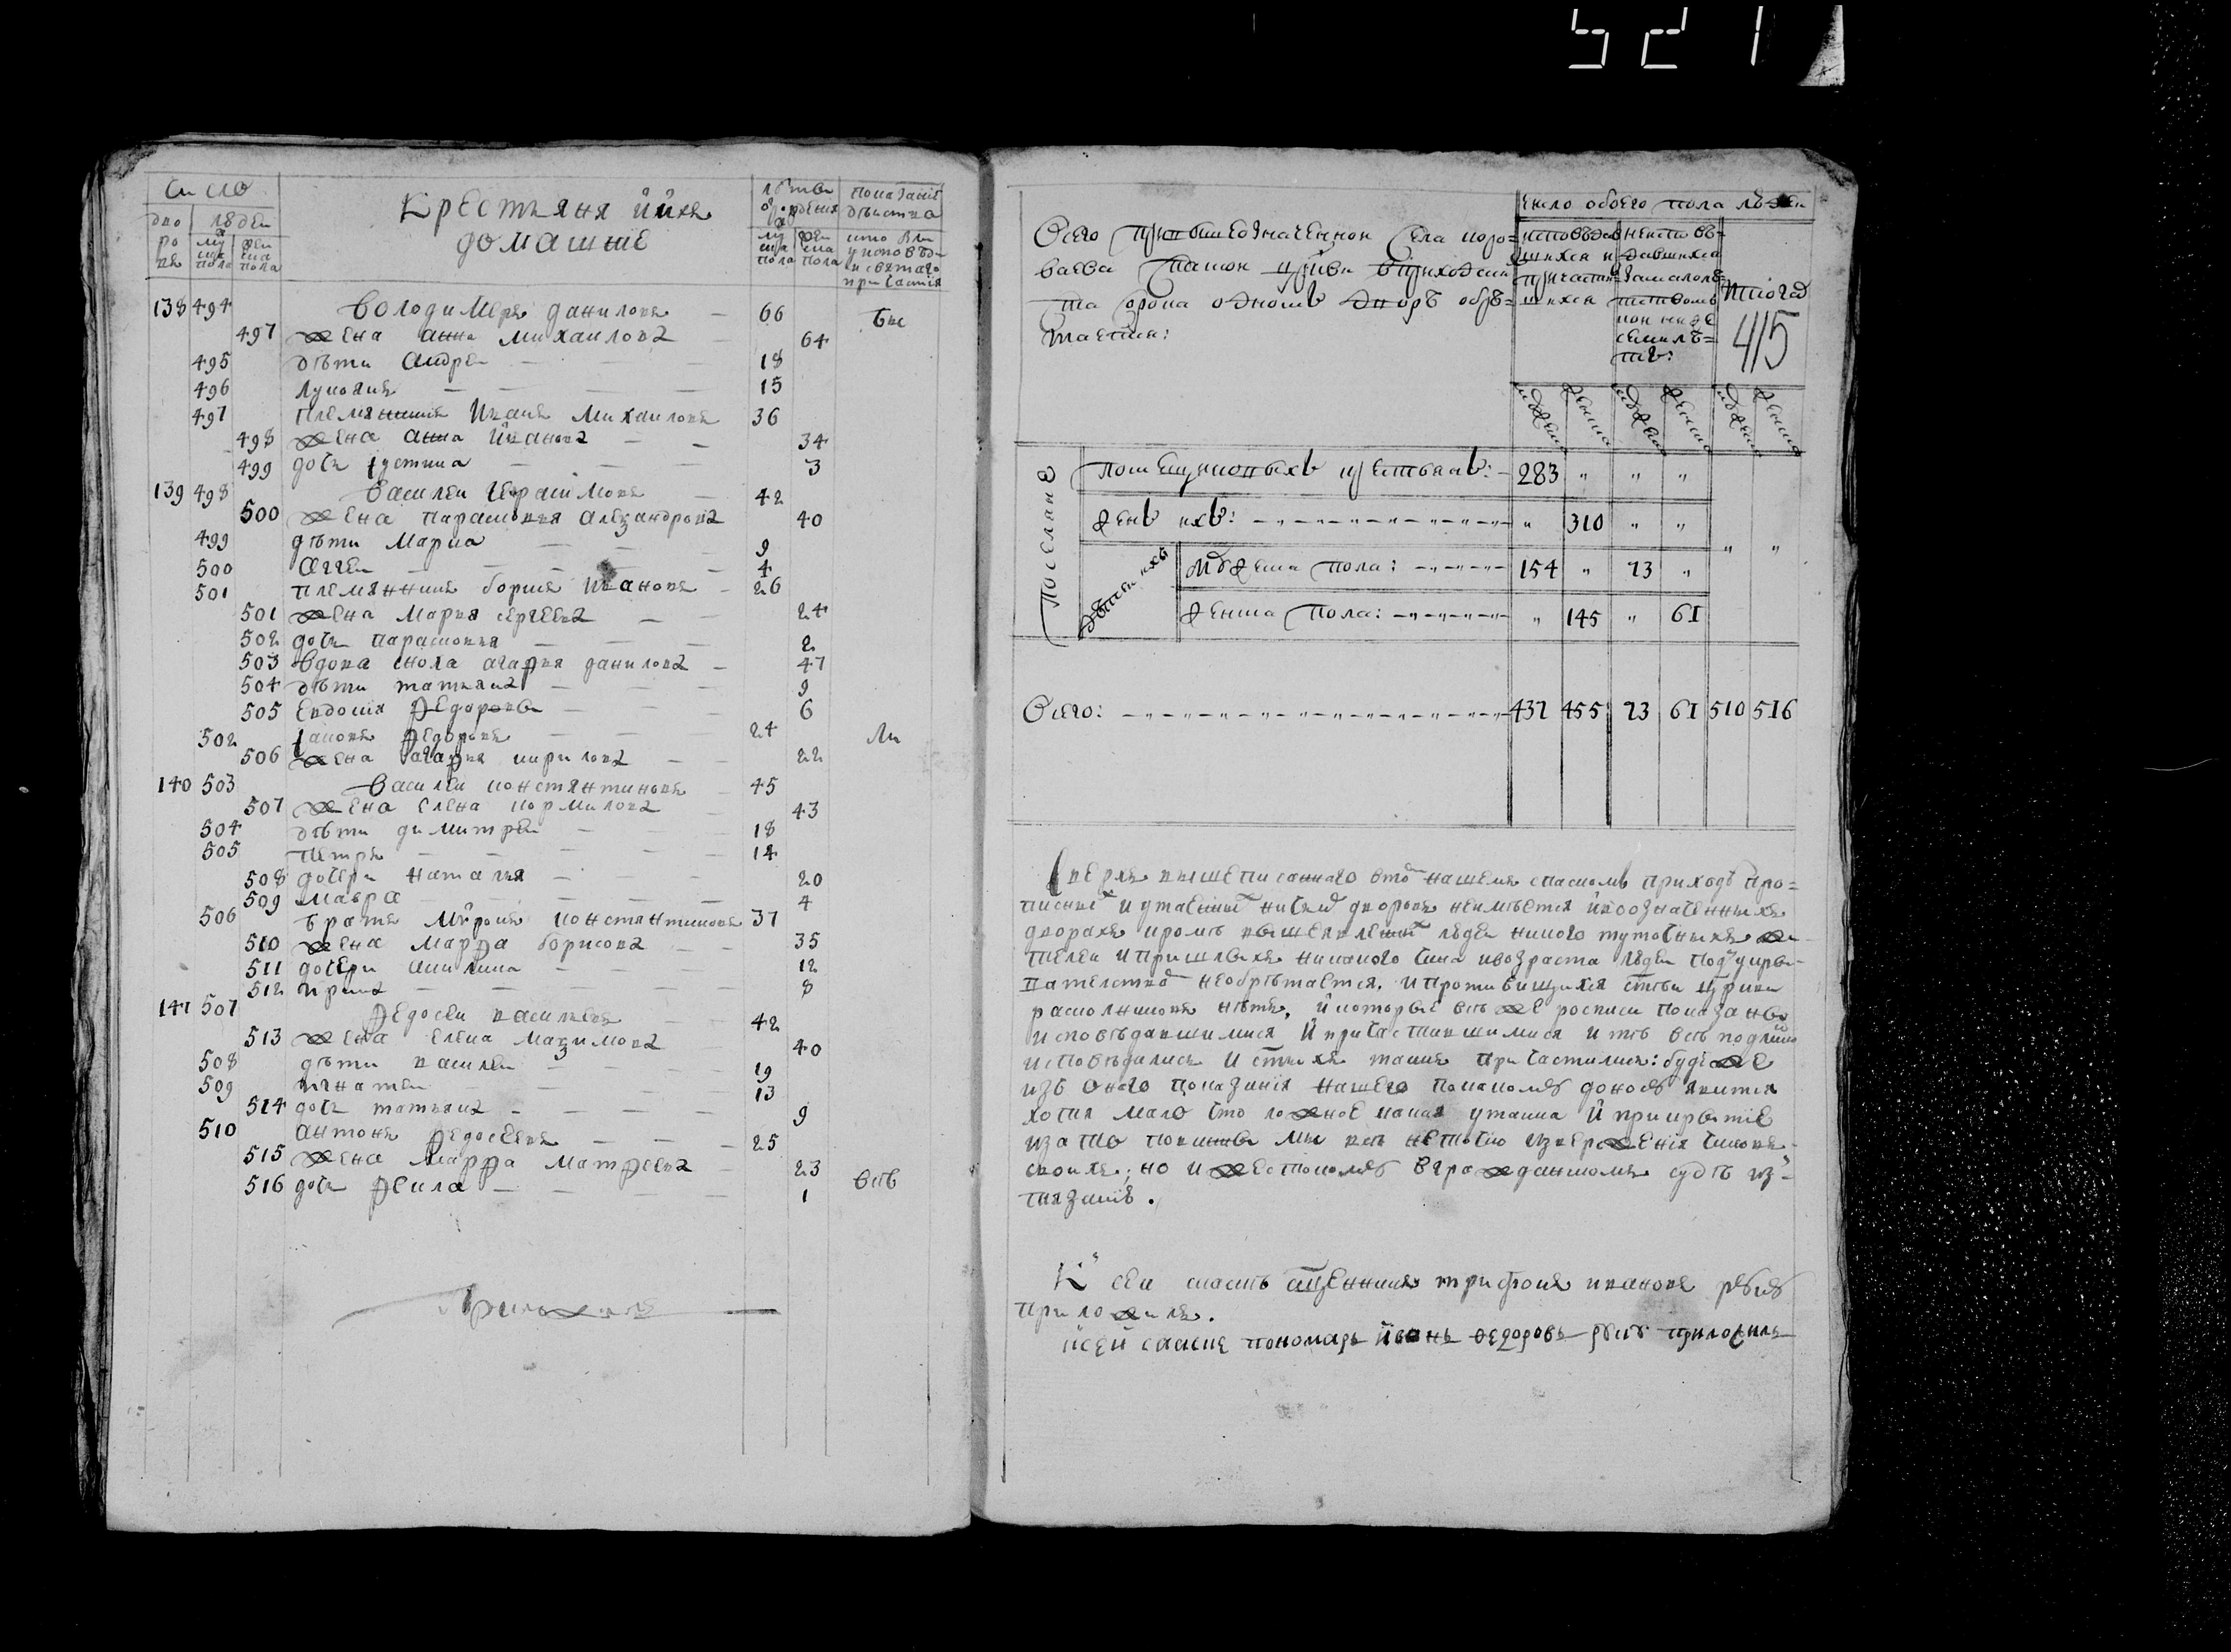 521
Число
дворовъ людеи
мужска пола женска пола
Крестьяня и ихъ
домашние
лѣта от рождения
мужска пола женска пола
показание дѣиства
кто был у исповѣди и святаго причастия
138 494 Володимеръ даниловъ — 66 был
497 жена анна михаилова 64
495 дѣти Андреи 18
496 лукоянъ 15
497 племянникъ Иванъ Михаиловъ 36
498 жена анна иванова 34
499 дочь устина 3
139 498 Василеи Герасимовъ 42
500 жена парасковья алеѯандрова 40
499 дѣти Марка 9
500 Аггеи 4
501 племянникъ борисъ Ивановъ 26
501 жена Марья сергеева 24
502 дочь парасковья 2
503 вдова агафья данилова 47
504 дѣти татьяна 9
505 Евдокия Федорова 6
502 яковъ Федоровъ 24
506 жена агафья кирилова 22
140 503 Василеи констянтиновъ 45
507 жена елена кормилова 43
504 дѣти димитреи 18
505 петръ 14
508 дочери наталья 20
509 мавра 4
506 братъ Миронъ констянтиновъ 37
510 жена марфа борисова 35
511 дочери акилина 12
512 ирина 8
141 507 Федосеи васильевъ 42
513 жена елена Маѯимова 40
508 дѣти василеи 19
509 игнатеи 13
514 дочь татьяна 9
510 антонъ Федосеевъ 25
515 жена марфа матфеева 23
516 дочь Фекла 1 всѣ
Приложилъ
Всего при вышеозначеннои села
ваева спаскои церкви в приходскихъ
одномъ дворѣ обрѣ=
таетца:
число обоего пола людеи
исповѣдавшихся и причастившихся
неисповѣдавшихся за малолѣтствомъ кои ниже семи лѣтъ:
итого
415
мужеска женска мужеска женска мужеска женска
Поселяне
помещиковыхъ крестьянъ: 283 „ „ „
женъ ихъ: „ 310 „ „
дѣтеи ихъ
мужеска пола: 154 „ 73 „
женска пола: „ 145 „ 61
„ „
Всего: 437 455 73 61 510 516
Сверхъ вышеписаннаго в томъ нашемъ спаскомъ приходѣ про=
писныхъ и утаенныхъ ничьихъ дворовъ неимѣется и в означенныхъ
дворахъ кромѣ вышеявленныхъ людеи никого тутошныхъ жи
телеи и пришлыхъ никакого чина и возраста людеи под укры
вателствомъ необрѣтается. и противящихся стѣи цркви
расколниковъ нѣтъ, и которые всѣ же росписи показаны
исповѣдавшимися и причастившимися и тѣ всѣ подлинно
исповѣдались и стыхъ таинъ причастились: буде же
изъ оного показания нашего по какому доносу явится
хотя мало что ложное какая утаика и прикрытие
и за то повинны мы всѣ неточию извержения чиновъ
своихъ; но и жестокому в гражданскомъ судѣ из=
тязанию.
К сеи скаскѣ сщенникъ трифонъ ивановъ руку
приложилъ.
к сеи скаске пономарь Иванъ Ѳедоровъ руку приложилъ